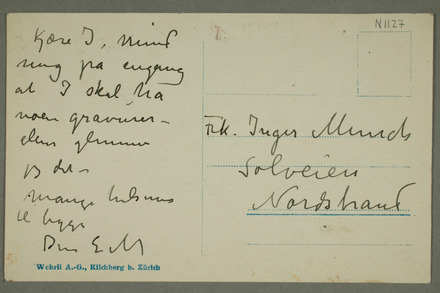 N 1127
Kjære I, mind
mig på engang
at I skal ha
noen gravurer –
ellers glemmer
jeg det –
mange hilsener
til begge
Din E M
Frk. Inger Munch
Solveien
Nordstrand
Wehrli A.-G., Kilchberg b. Zürich